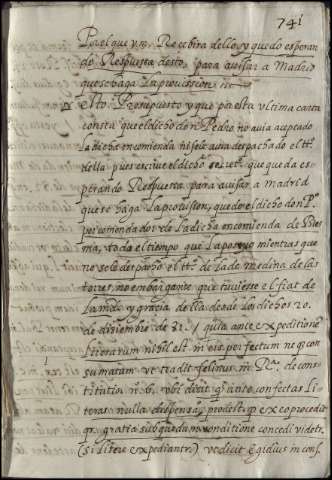 741
Por el que v.m. Recibira dello, y quedo esperan
do Respuesta desto, para avisar a Madrid
que se haga La provission
esto Prosupuesto y que por esta ultima carta
consta que el dicho don Pedro no avia aceptado
La dicha encomienda ni se le avia despachado el tto
della pues escrive el dicho que queda es
perando Respuesta para avisar a Madrid
que se haga La provission, quedo el dicho don Po
por comendador de La dicha encomienda de Vies
ma, todo el tiempo que La poseyo mientras que
no se le despacho el tto de La de medina de las
torres, no embargante que tuviesse el fiat de
La md y gracia della desde Los dichos 20.
de diziembre de 81. / quia ante expeditionem
Literarum nihil est in eo perfectum neque con
sumatum ut tradit felinus in
n. 6. ubi dixit quod ante confectas Li
teras nulla dispensatio
gratia sub quadam conditione concedi videtur
(si litere expediantur) ut dicit Egidius in cons.